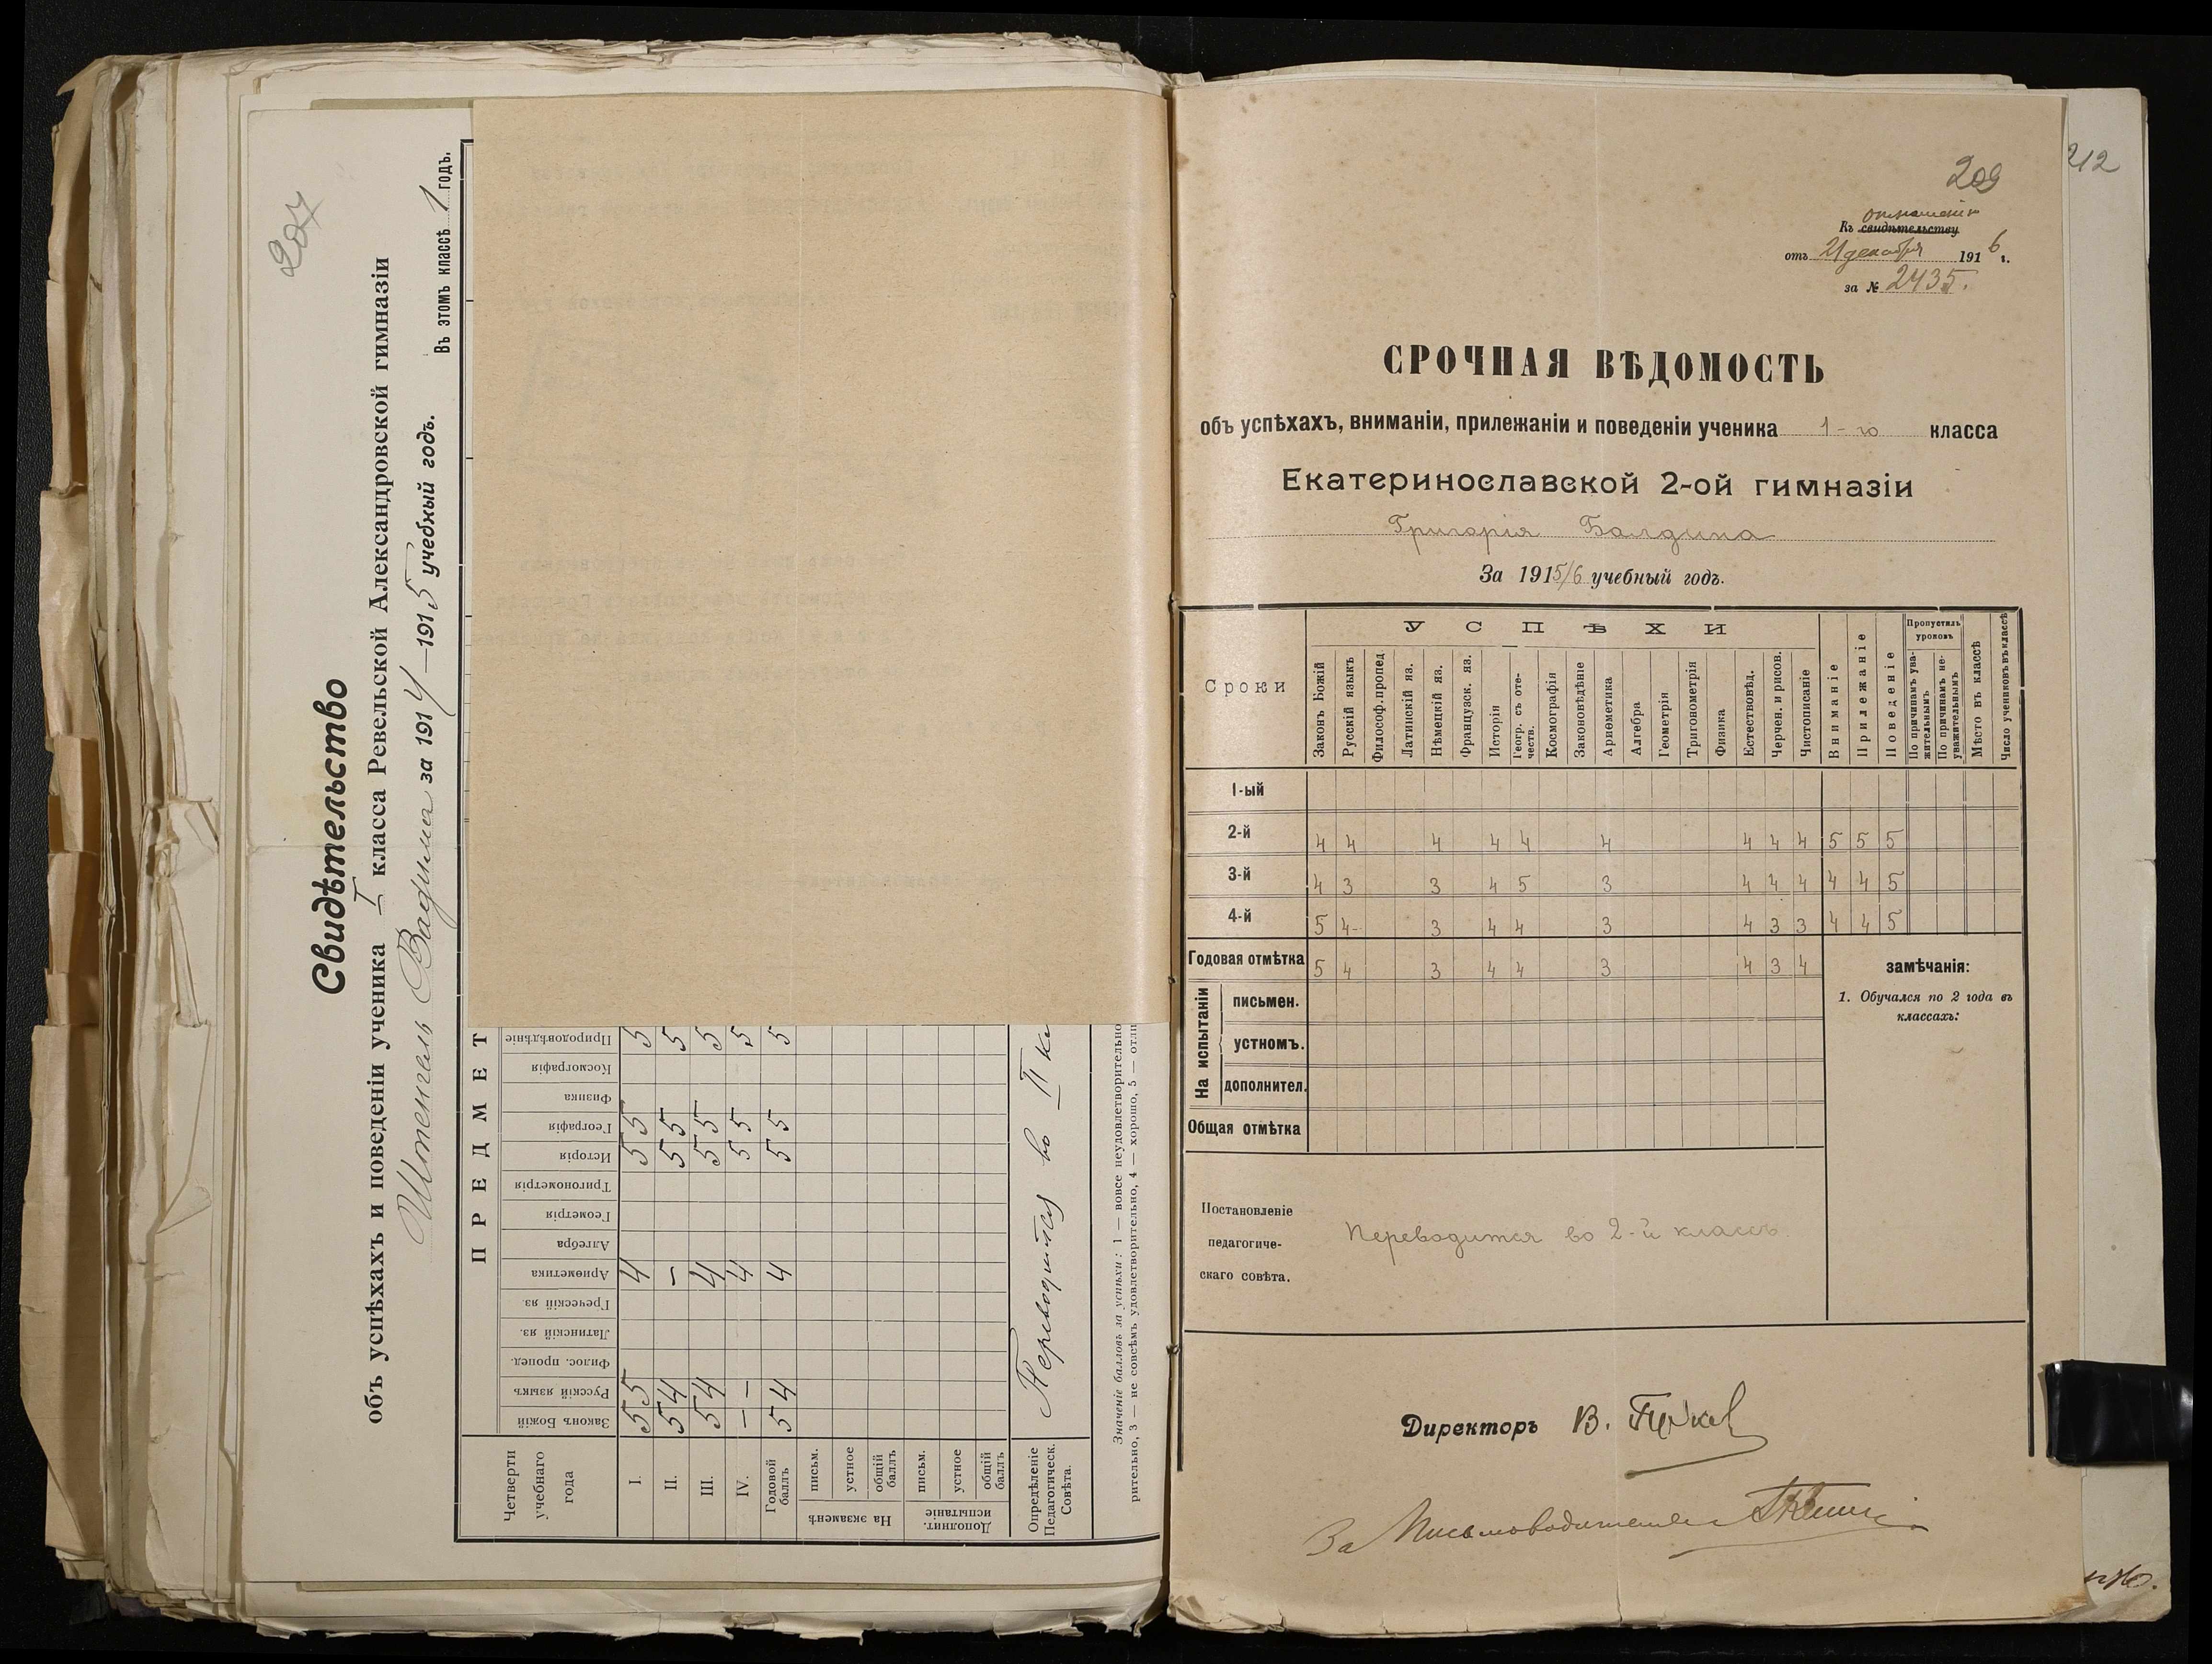 207
Свидѣтельство
объ успѣхахъ и поведеніи ученика I класса Ревельской Александровской гимназіи
Штенгель Вадима за 1914—1915 учебный годъ.
Въ этомъ классѣ 1 годъ.
ПРЕДМЕТ
Четверти учебнаго года
Законъ Божій
Русскій языкъ
Филос. пропед.
Латинскій яз.
Греческій яз.
Ариѳметика
Алгебра
Геометрія
Тригонометрія
Исторія
Географія
Физика
Космографія
Природовѣдѣніе
I. 5 5 4 5 5 5
II. 5 4 – 5 5 5
III. 5 4 4 5 5 5
IV. – – 4 5 5 5
Годовой баллъ 5 4 4 5 5 5
На экзаменѣ
письм.
устное
общій баллъ
Дополнит. испытаніе
письм.
устное
общій баллъ
Опредѣленіе Педагогическ. Совѣта.
Переводится во II кл
Значеніе балловъ за успѣхи: 1 — вовсе неудовлетворительно
рительно, 3 — не совсѣмъ удовлетворительно, 4 — хорошо, 5 — отли
212
209
отношенію
Къ свидѣтельству
отъ 21 декабря 1916 г.
за № 2435.
СРОЧНАЯ ВѢДОМОСТЬ
объ успѣхахъ, вниманіи, прилежаніи и поведеніи ученика 1-го класса
Екатеринославской 2-ой гимназіи
Григорія Балдина
За 1915/6 учебный годъ.
Сроки
УСПѢХИ
Законъ Божій
Русскій языкъ
Философ. пропед
Латинскій яз.
Нѣмецкій яз.
Французск. яз.
Исторія
Геогр. съ отечеств.
Космографія
Законовѣдѣніе
Ариѳметика
Алгебра
Геометрія
Тригонометрія
Физика
Естествовѣд.
Черчен. и рисов.
Чистописаніе
Вниманіе
Прилежаніе
Поведеніе
Пропустилъ уроковъ
По причинамъ уважительнымъ
По причинамъ неуважительнымъ
Мѣсто въ классѣ
Число учениковъ въ классѣ
1-ый
2-й 4 4 4 4 4 4 4 4 4 5 5 5
3-й 4 3 3 4 5 3 4 4 4 4 4 5
4-й 5 4- 3 4 4 3 4 3 3 4 4 5
Годовая отмѣтка 5 4 3 4 4 3 4 3 4
На испытаніи
письмен.
устномъ.
дополнител.
Общая отмѣтка
замѣчанія:
1. Обучался по 2 года въ
классахъ:
Постановленіе
педагогиче-
скаго совѣта.
Переводится во 2-й классъ
Директоръ В.
За Письмоводителя